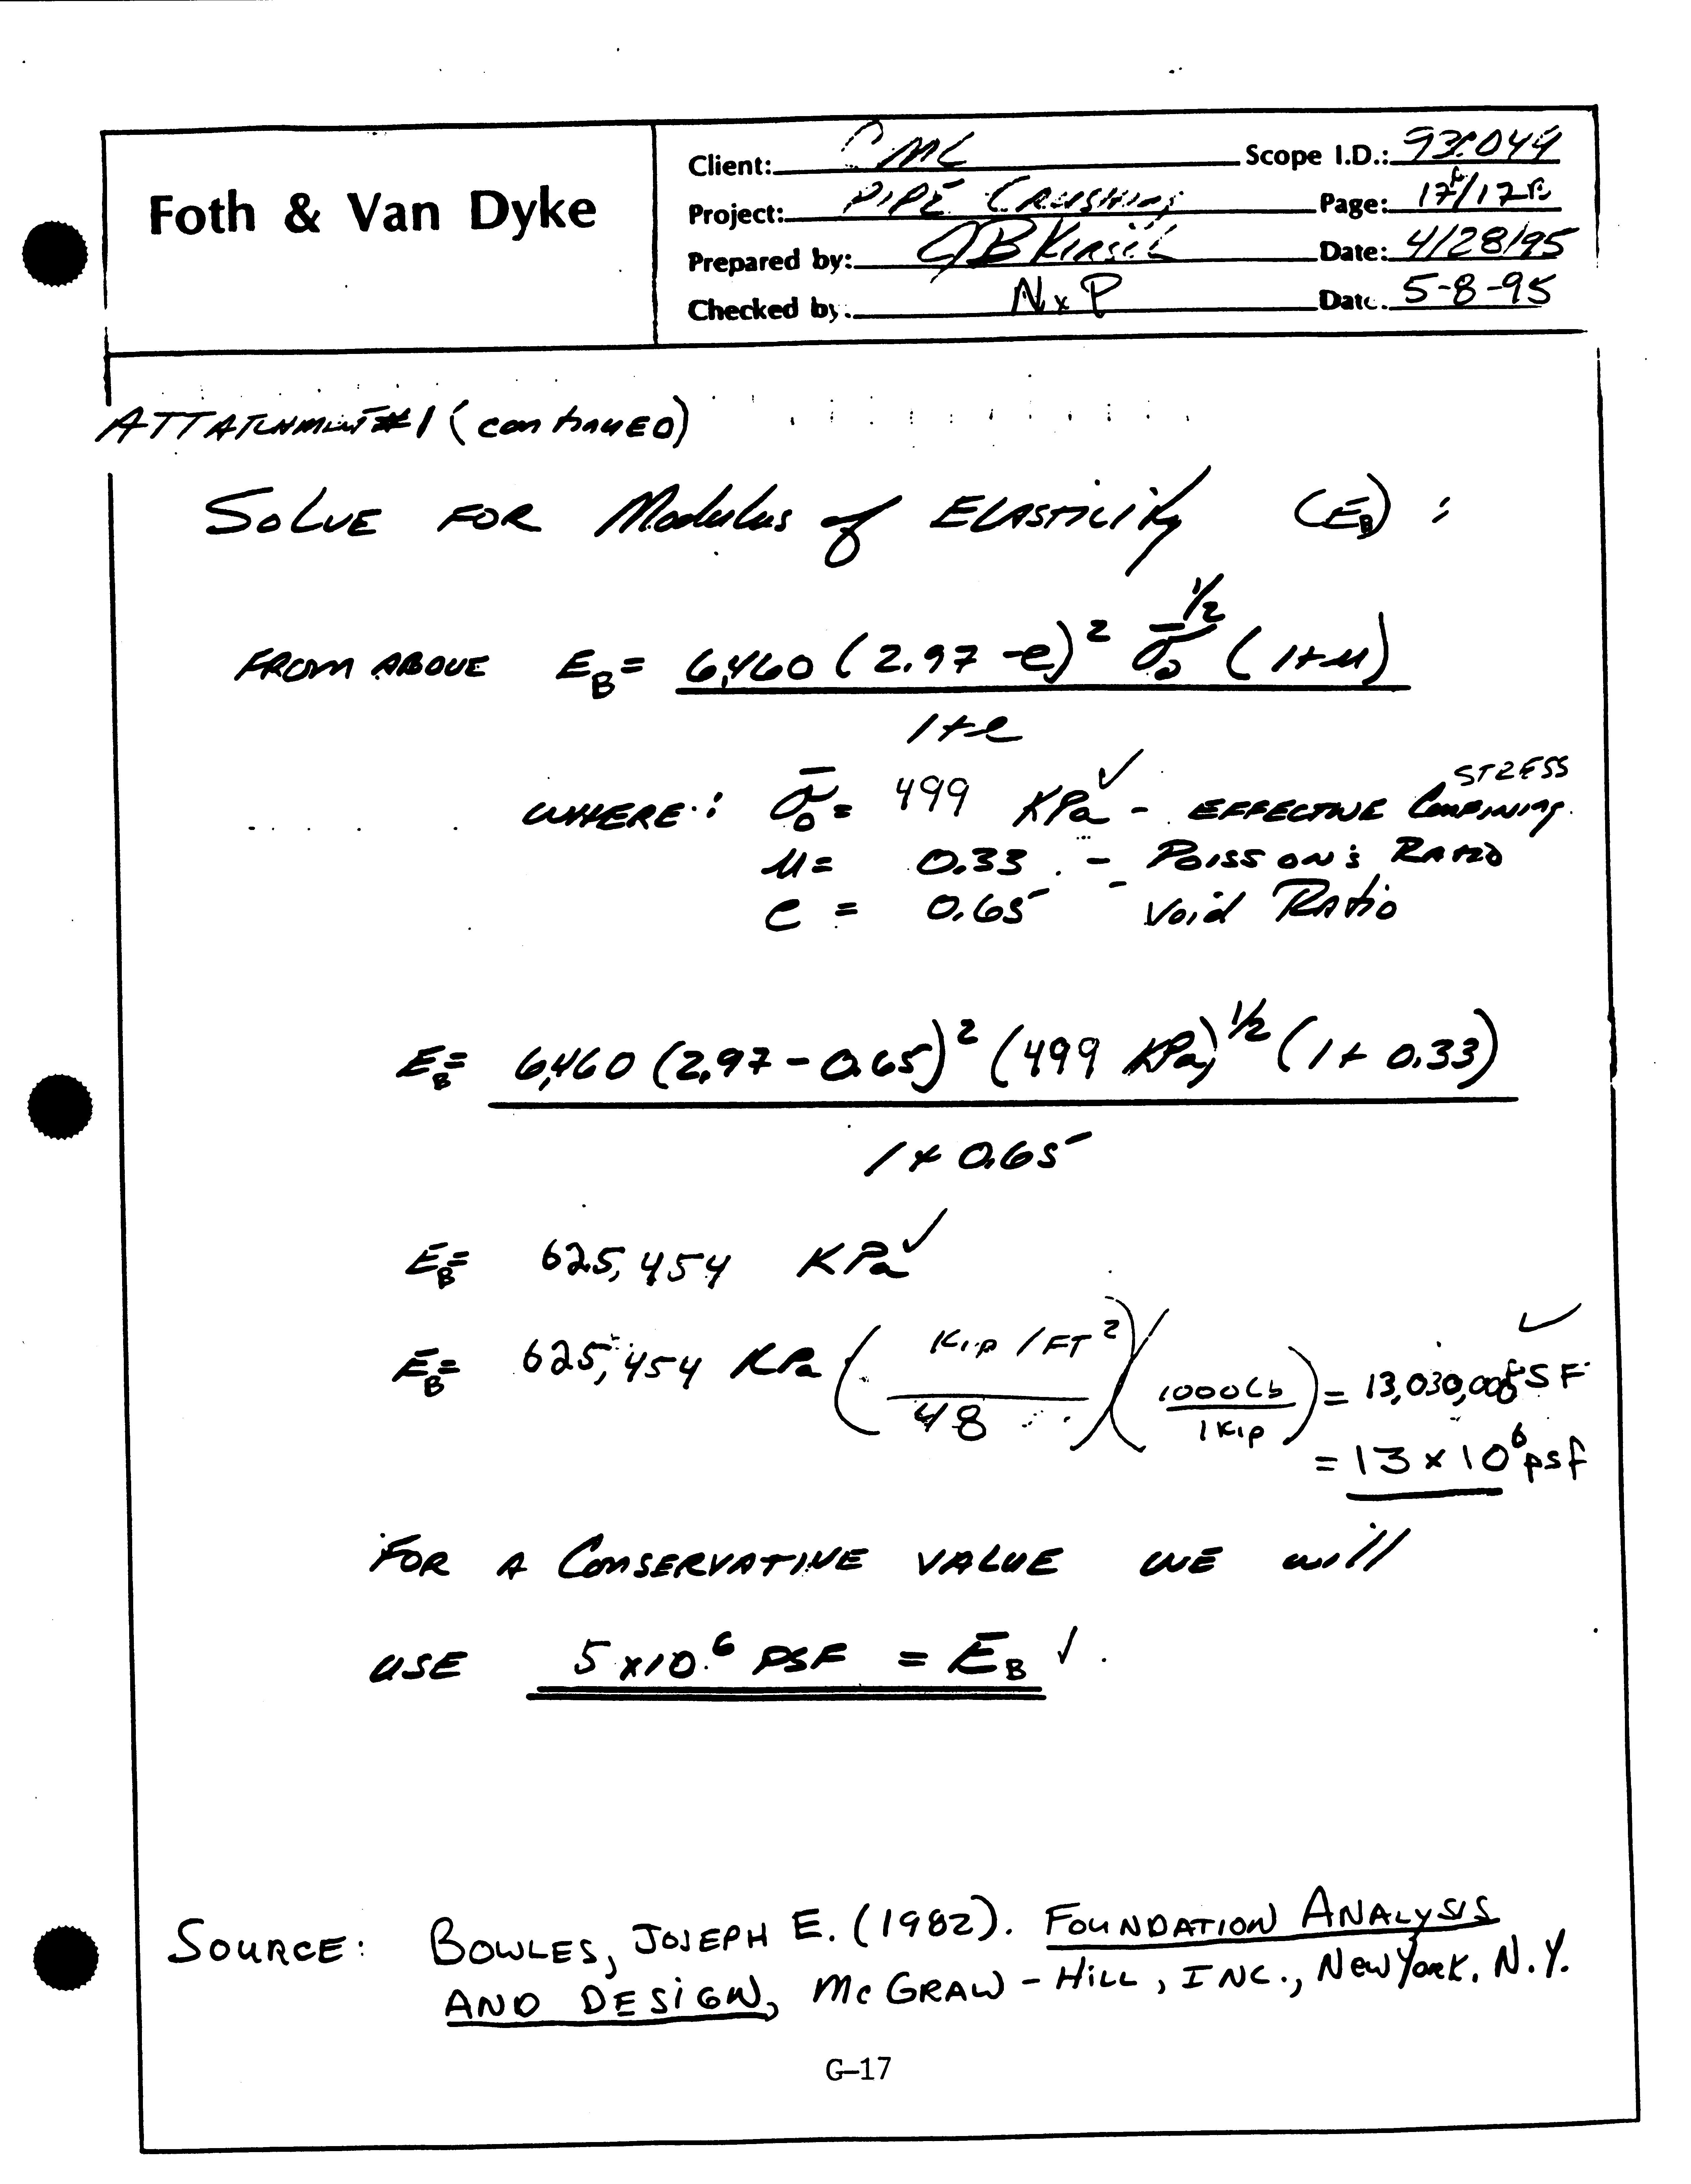 Foth & Van Dyke
Client: CMC Scope I.D.: 93C049
Project: PIPE CRUSHING Page: 17/17
Prepared by: JB Date: 4/28/95
Checked by: NxP Date: 5-8-95
ATTATCHMENT #1 (continUED)
SOLVE FOR Modulus of ELASTICITY (E_B) :
FROM ABOVE E_B = 6,460 (2.97 - e)² σ̄₀^1/2 (1+μ)
1+e
WHERE: σ̄₀ = 499 KPa ✓ - EFFECTIVE CONFINING STRESS
μ = 0.33 - POISSON'S RATIO
e = 0.65 - Void RATIO
E_B = 6,460 (2.97 - 0.65)² (499 KPa)^1/2 (1 + 0.33)
1 + 0.65
E_B = 625,454 KPa ✓
E_B = 625,454 KPa (Kip/FT² / 48) (1000 Lb / 1 Kip) = 13,030,000 PSF ✓
= 13 x 10⁶ psf
FOR A CONSERVATIVE VALUE WE will
USE 5 x10⁶ PSF = E_B ✓
SOURCE: BOWLES, JOSEPH E. (1982). FOUNDATION ANALYSIS
AND DESIGN, McGRAW-HILL, INC., New York, N.Y.
G-17